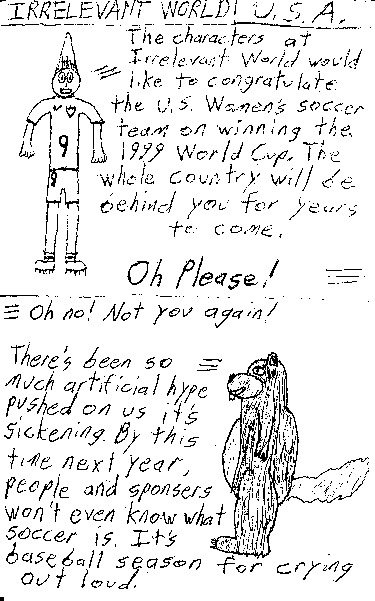 IRRELEVANT WORLD! U.S.A.
The characters at
Irrelevant World would
like to congratulate
the U.S. Women's soccer
team on winning the
1999 World Cup. The
whole country will be
behind you for years
to come.
9
9
Oh Please!
Oh no! Not you again!
There's been so
much artificial hype
pushed on us it's
sickening. By this
time next year,
people and sponsers
won't even know what
soccer is. It's
baseball season for crying
out loud.